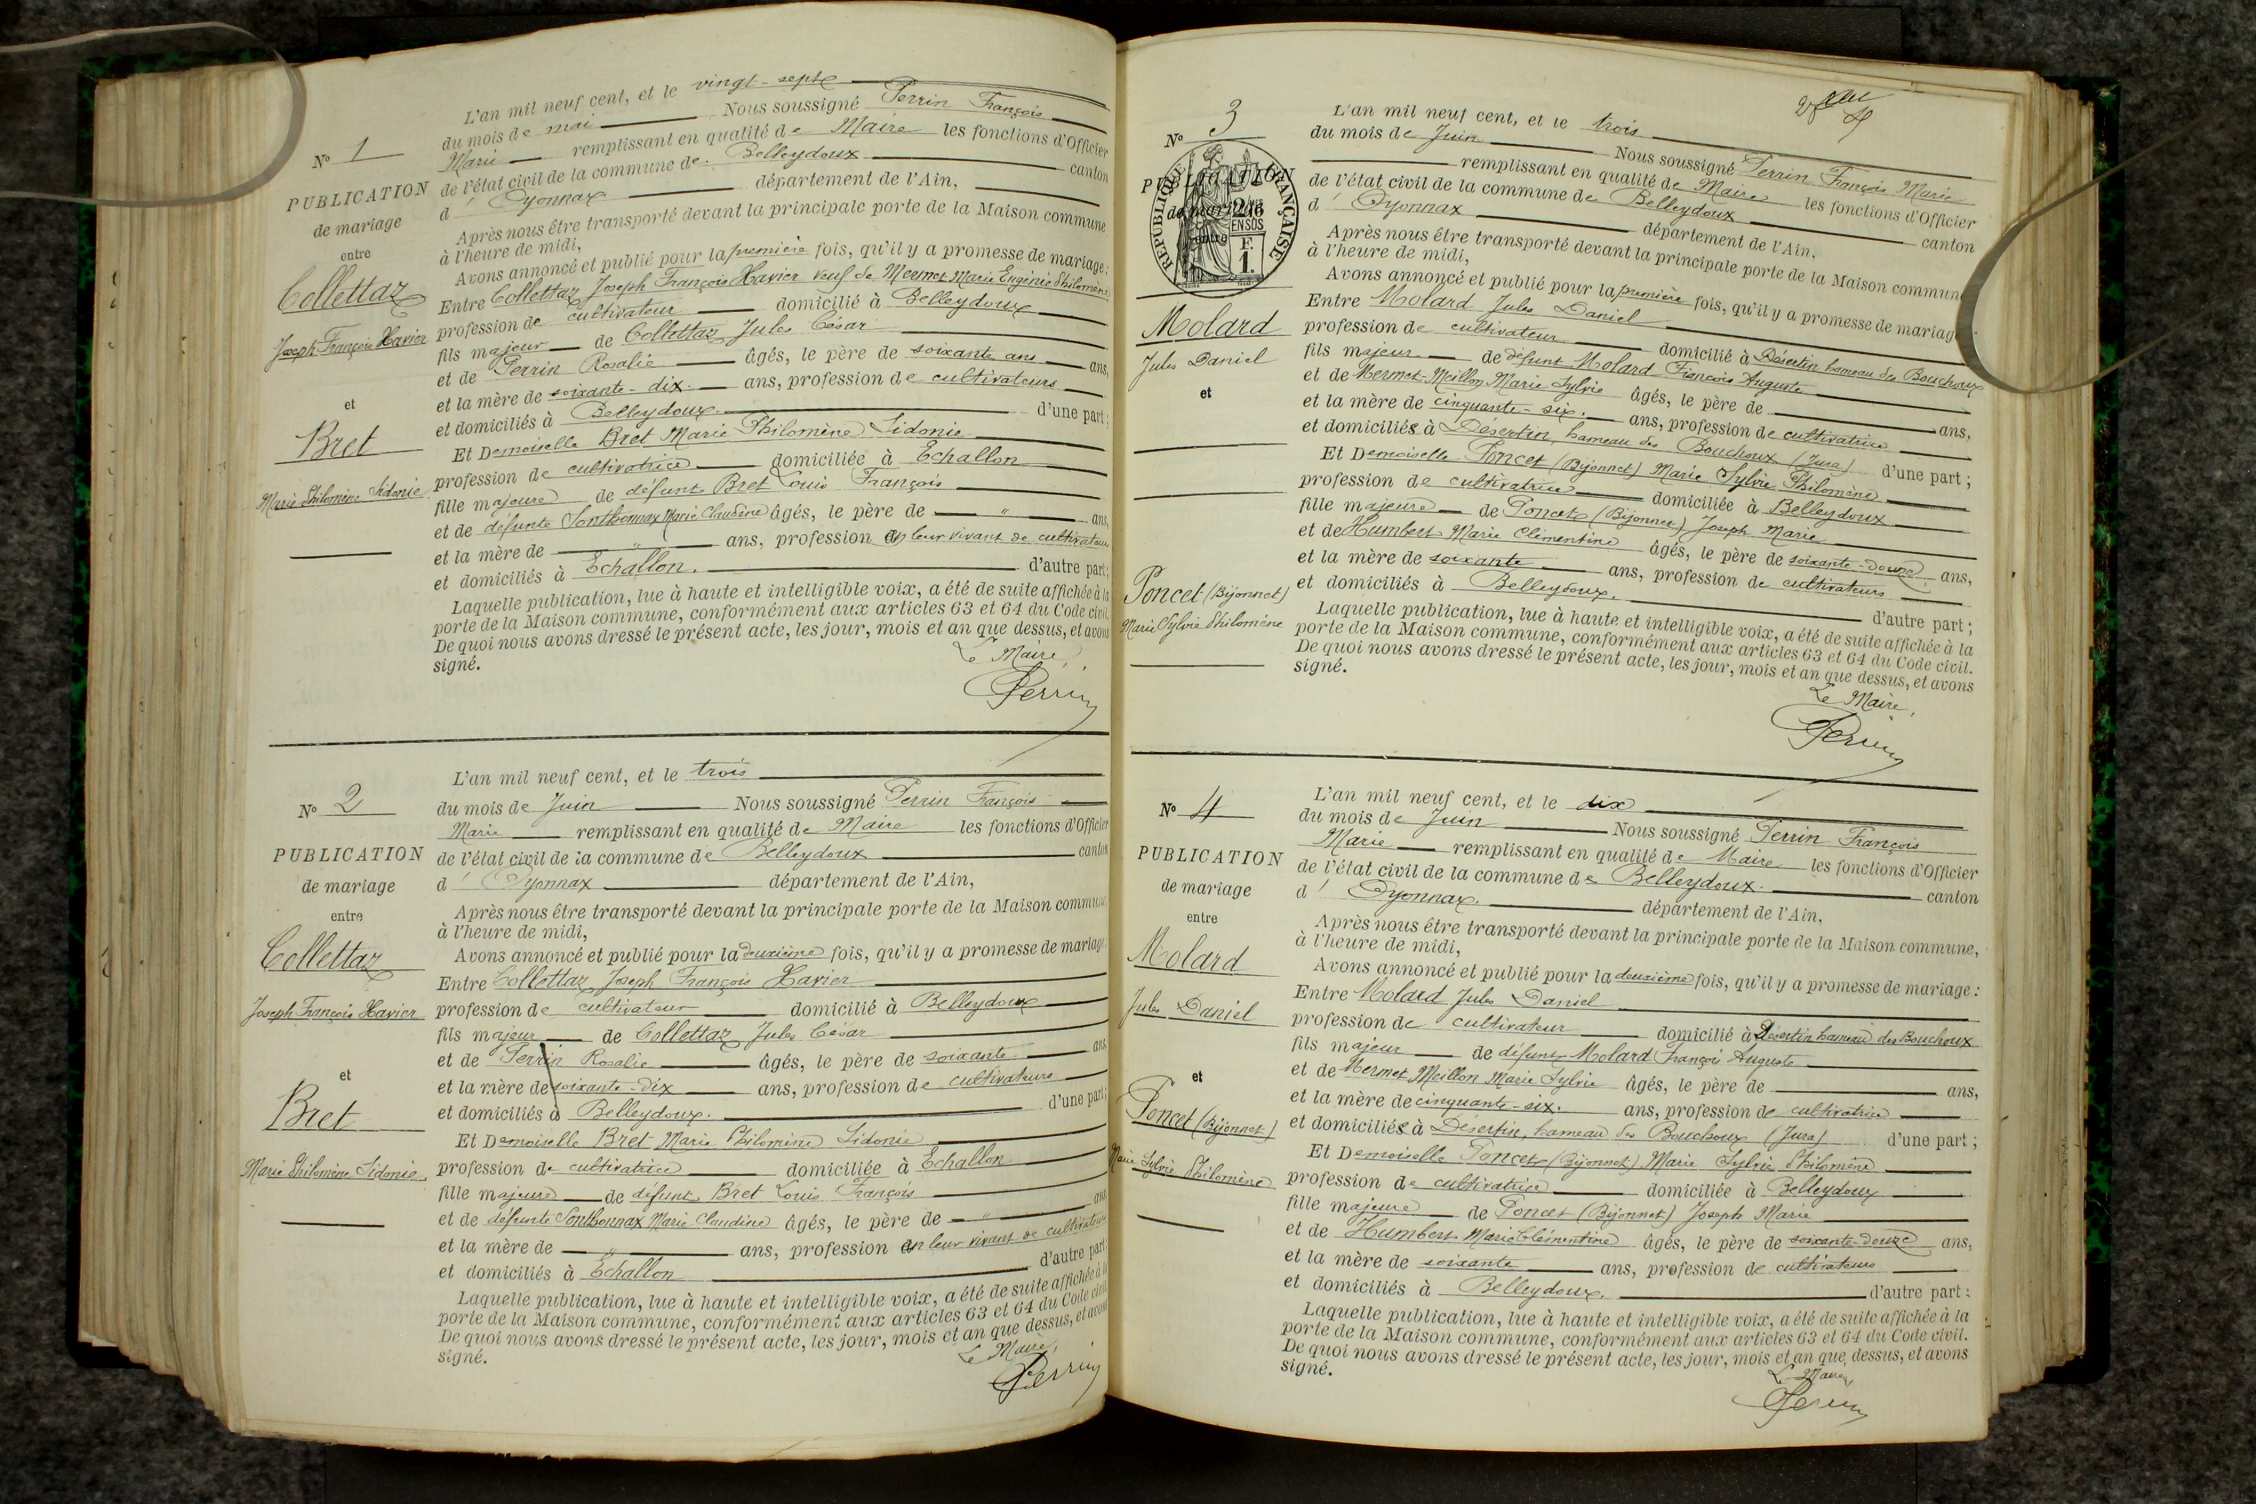 L'an mil neuf cent, et le vingt-sept
du mois de mai Nous soussigné Perrin François
Marie remplissant en qualité de Maire les fonctions d'Officier
de l'état civil de la commune de Belleydoux canton
d'Oyonnax département de l'Ain,
Après nous être transporté devant la principale porte de la Maison commune
à l'heure de midi,
Avons annoncé et publié pour la première fois, qu'il y a promesse de mariage:
Entre Collettaz Joseph François Xavier veuf de Mermet Marie Eugénie Philomène
profession de cultivateur domicilié à Belleydoux
fils majeur de Collettaz Jules César
et de Perrin Rosalie âgés, le père de soixante ans ans,
et la mère de soixante-dix ans, profession de cultivateurs
et domiciliés à Belleydoux d'une part;
Et Demoiselle Bret Marie Philomène Sidonie
profession de cultivatrice domiciliée à Echallon
fille majeure de défunt Bret Louis François
et de défunte Sonthonnax Marie Claudine âgés, le père de " ans,
et la mère de " ans, profession en leur vivant de cultivateurs
et domiciliés à Echallon. d'autre part;
Laquelle publication, lue à haute et intelligible voix, a été de suite affichée à la
porte de la Maison commune, conformément aux articles 63 et 64 du Code civil.
De quoi nous avons dressé le présent acte, les jour, mois et an que dessus, et avons
signé.
Le Maire,
Perrin
N° 1
PUBLICATION
de mariage
entre
Collettaz
Joseph François Xavier
et
Bret
Marie Philomène Sidonie
L'an mil neuf cent, et le trois
du mois de Juin Nous soussigné Perrin François
Marie remplissant en qualité de Maire les fonctions d'Officier
de l'état civil de la commune de Belleydoux canton
d'Oyonnax département de l'Ain,
Après nous être transporté devant la principale porte de la Maison commune,
à l'heure de midi,
Avons annoncé et publié pour la deuxième fois, qu'il y a promesse de mariage:
Entre Collettaz Joseph François Xavier
profession de cultivateur domicilié à Belleydoux
fils majeur de Collettaz Jules César
et de Perrin Rosalie âgés, le père de soixante ans,
et la mère de soixante-dix ans, profession de cultivateurs
et domiciliés à Belleydoux. d'une part;
Et Demoiselle Bret Marie Philomène Sidonie
profession de cultivatrice domiciliée à Echallon
fille majeure de défunt Bret Louis François
et de défunte Sonthonnax Marie Claudine âgés, le père de " ans
et la mère de " ans, profession en leur vivant de cultivateurs
et domiciliés à Echallon d'autre part;
Laquelle publication, lue à haute et intelligible voix, a été de suite affichée à la
porte de la Maison commune, conformément aux articles 63 et 64 du Code civil.
De quoi nous avons dressé le présent acte, les jour, mois et an que dessus, et avons
signé.
Le Maire,
Perrin
N° 2
PUBLICATION
de mariage
entre
Collettaz
Joseph François Xavier
et
Bret
Marie Philomène Sidonie
L'an mil neuf cent, et le trois
du mois de Juin Nous soussigné Perrin François Marie
remplissant en qualité de Maire les fonctions d'Officier
de l'état civil de la commune de Belleydoux canton
d'Oyonnax département de l'Ain,
Après nous être transporté devant la principale porte de la Maison commun
à l'heure de midi,
Avons annoncé et publié pour la première fois, qu'il y a promesse de mariag
Entre Molard Jules Daniel
profession de cultivateur domicilié à Désertin hameau des Bouchoux
fils majeur de défunt Molard François Auguste
et de Mermet-Meillon Marie Sylvie âgés, le père de ans,
et la mère de cinquante-six. ans, profession de cultivatrice
et domiciliés à Désertin, hameau des Bouchoux (Jura) d'une part;
Et Demoiselle Poncet (Bijonnet) Marie Sylvie Philomène
profession de cultivatrice domiciliée à Belleydoux
fille majeure de Poncet (Bijonnet) Joseph Marie
et de Humbert Marie Clémentine âgés, le père de soixante-douze ans,
et la mère de soixante ans, profession de cultivateurs
et domiciliés à Belleydoux. d'autre part;
Laquelle publication, lue à haute et intelligible voix, a été de suite affichée à la
porte de la Maison commune, conformément aux articles 63 et 64 du Code civil.
De quoi nous avons dressé le présent acte, les jour, mois et an que dessus, et avons
signé.
Le Maire,
Perrin
N° 3
PUBLICATION
de mariage
entre
RÉPUBLIQUE FRANÇAISE
EN SUS
F.
1.
Molard
Jules Daniel
et
Poncet (Bijonnet)
Marie Sylvie Philomène
L'an mil neuf cent, et le dix
du mois de Juin Nous soussigné Perrin François
Marie remplissant en qualité de Maire les fonctions d'Officier
de l'état civil de la commune de Belleydoux. canton
d'Oyonnax. département de l'Ain,
Après nous être transporté devant la principale porte de la Maison commune,
à l'heure de midi,
Avons annoncé et publié pour la deuxième fois, qu'il y a promesse de mariage:
Entre Molard Jules Daniel
profession de cultivateur domicilié à Désertin hameau des Bouchoux
fils majeur de défunt Molard François Auguste
et de Mermet Meillon Marie Sylvie âgés, le père de ans,
et la mère de cinquante-six. ans, profession de cultivatrice
et domiciliés à Désertin, hameau des Bouchoux (Jura) d'une part;
Et Demoiselle Poncet (Bijonnet) Marie Sylvie Philomène
profession de cultivatrice domiciliée à Belleydoux
fille majeure de Poncet (Bijonnet) Joseph Marie
et de Humbert Marie Clémentine âgés, le père de soixante-douze ans,
et la mère de soixante ans, profession de cultivateurs
et domiciliés à Belleydoux. d'autre part;
Laquelle publication, lue à haute et intelligible voix, a été de suite affichée à la
porte de la Maison commune, conformément aux articles 63 et 64 du Code civil.
De quoi nous avons dressé le présent acte, les jour, mois et an que dessus, et avons
signé.
Le Maire,
Perrin
N° 4
PUBLICATION
de mariage
entre
Molard
Jules Daniel
et
Poncet (Bijonnet)
Marie Sylvie Philomène